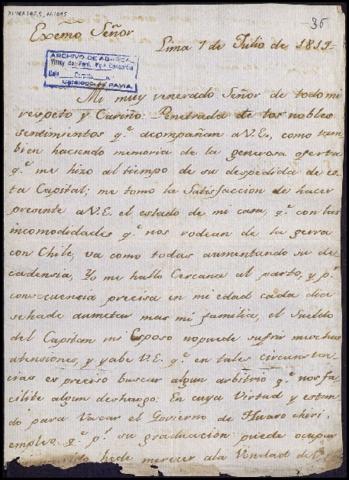 36
Excmo Señor
Lima 7 de Julio de 1815
ARCHIVO DE
Mi muy venerado Señor de todo mi
respeto y Cariño: Penetrada de los nobles
sentimientos q.e acompañan a V.E., como tam
bien haciendo memoria de la generosa oferta
q.e me hizo al tiempo de su despedida de es
ta Capital; me tomo la Satisfaccion de hacer
presente a V.E. el estado de mi casa, q.e con las
incomodidades q.e nos rodean de la gerra
con Chile, va como todas aumentando su de
cadensia, Yo me hallo Cercana al parto, y p.r
consecuencia precisa en mi edad cada dia
se ha de aumetar mas mi familia, el Sueldo
del Capitan mi Esposo no puede sufrir muchas
atensiones, y sabe V.E. q.e en tales circunstan
cias es preciso buscar algun arbitrio q.e nos fa
cilite algun desahogo: En cuya Virtud y estan
do para Vacar el Govierno de Huarocheri,
empleo q.e p.r su graduacion puede ocupar
he de merecer a la Vondad de